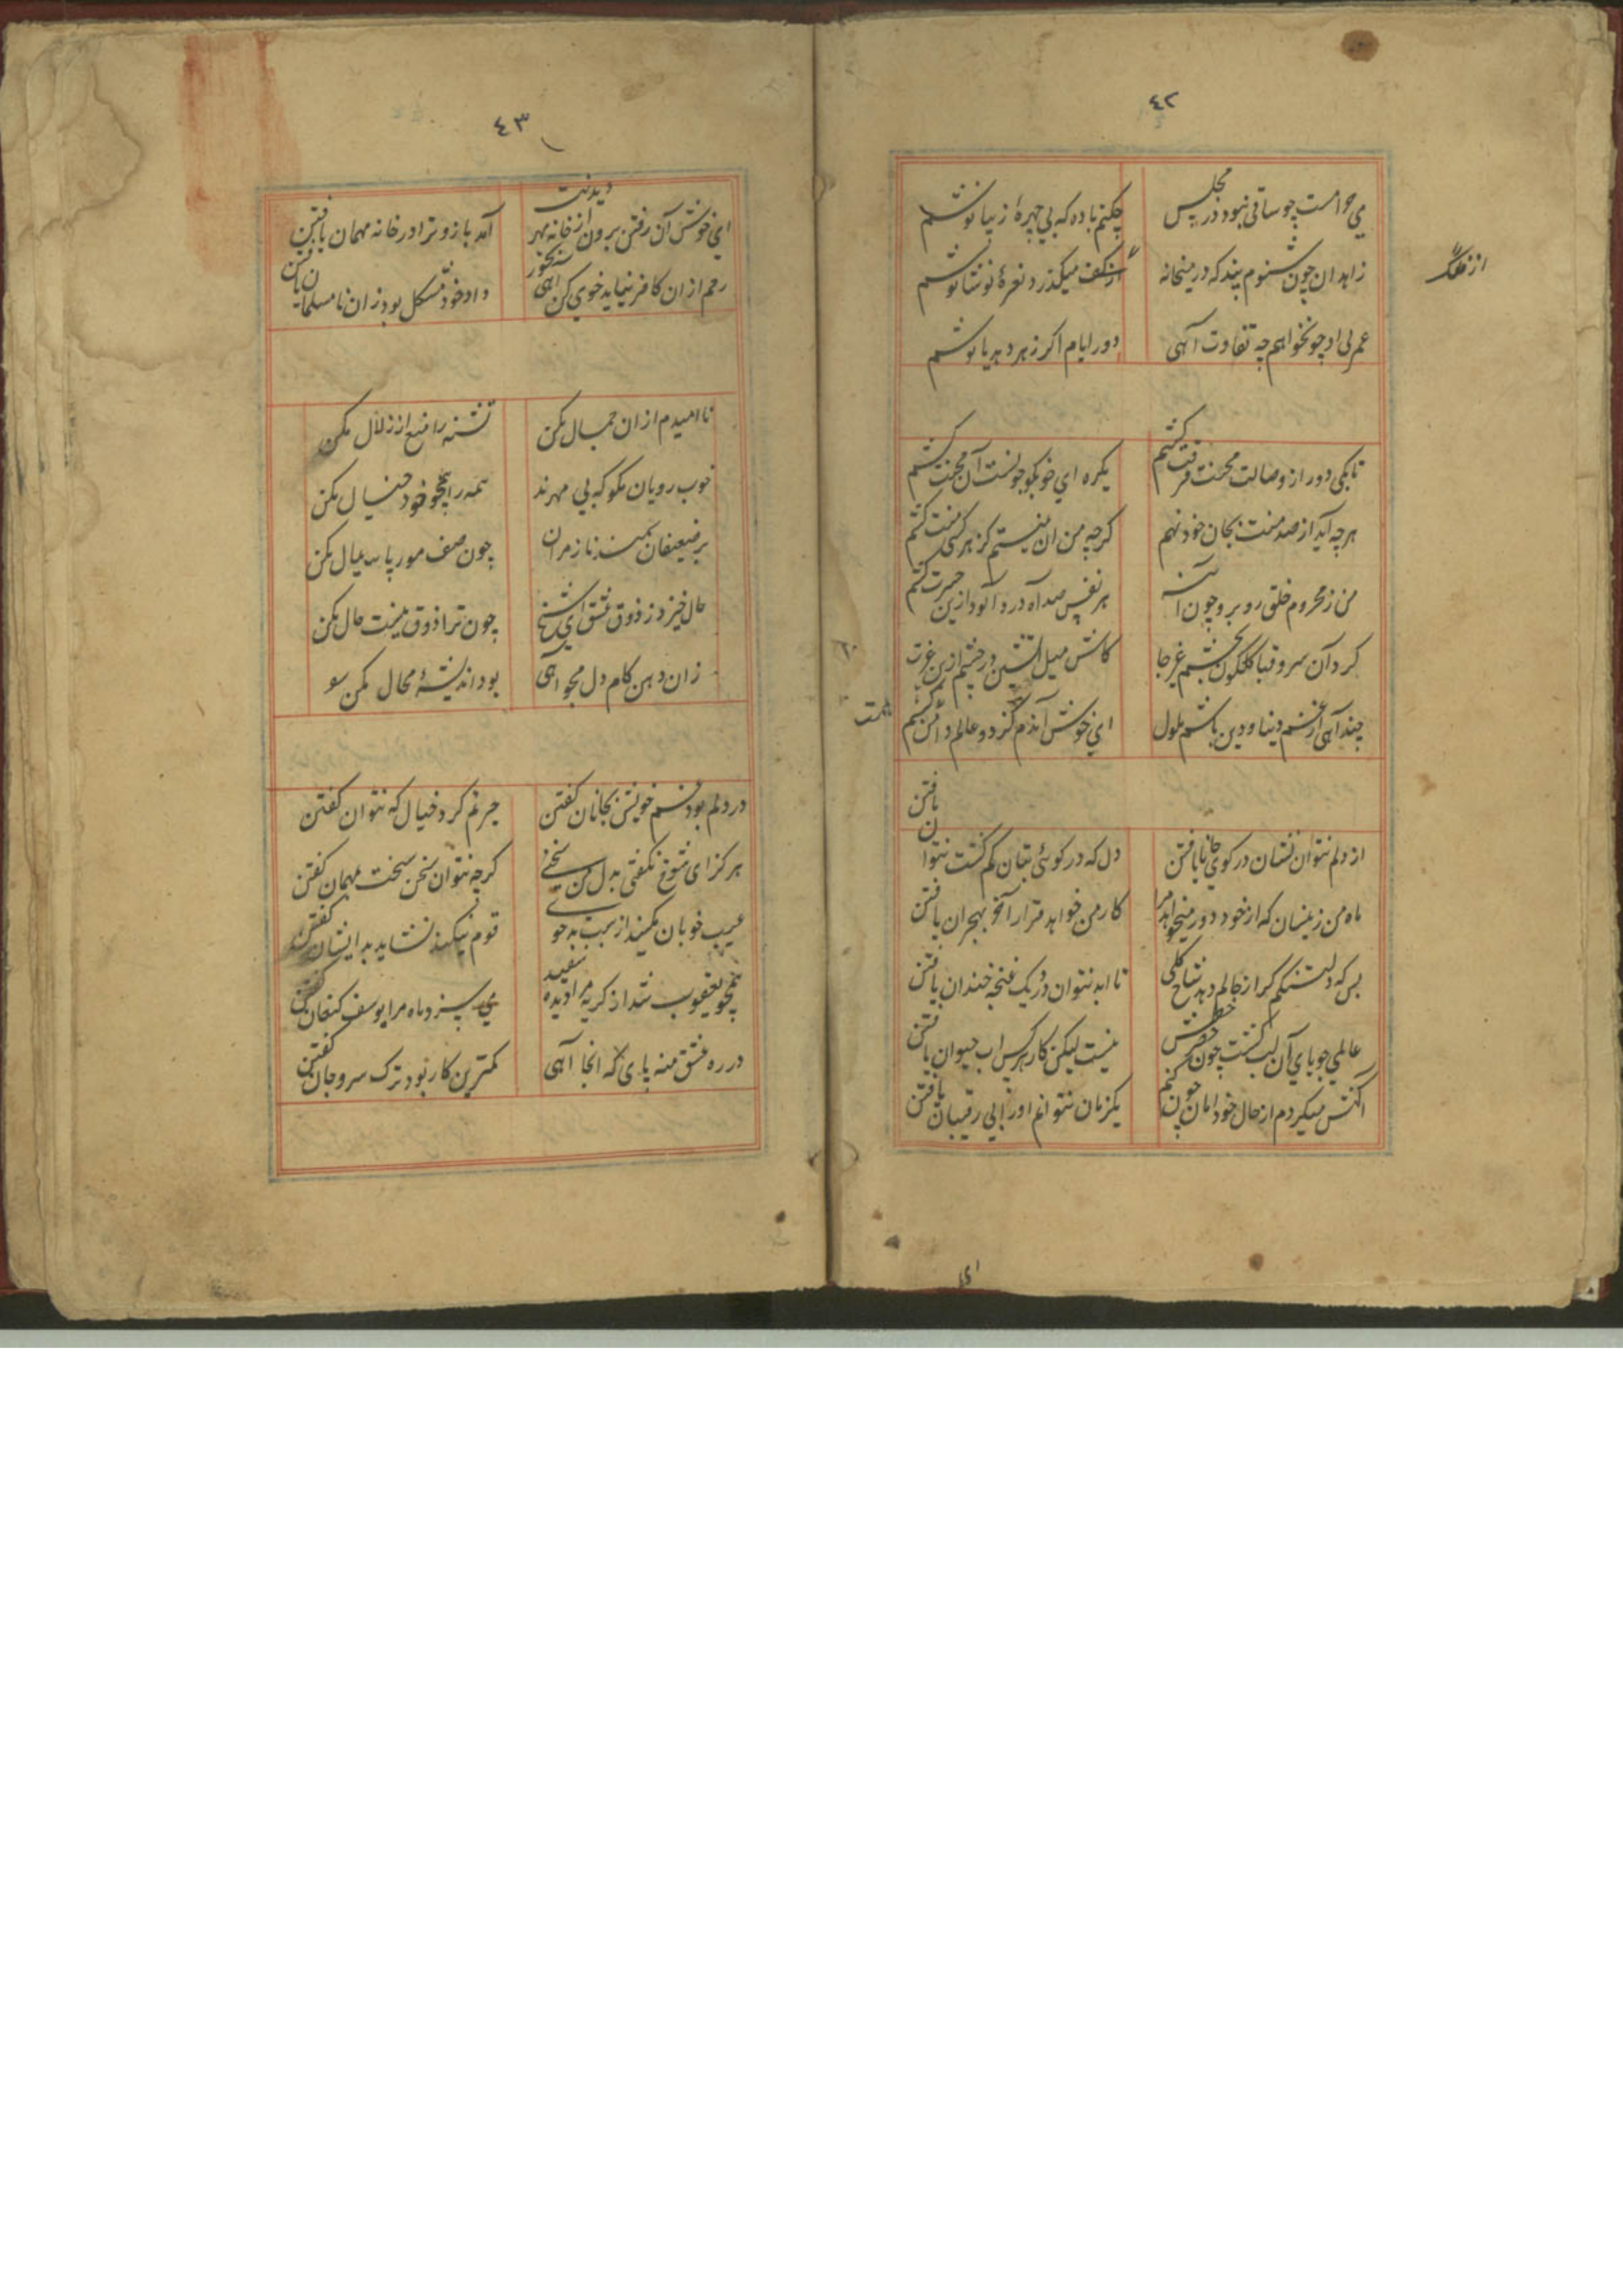 ٤٢
می حرامست چو ساقی نبود در مجلس
چکنم باده که بی چهرهٔ زیبا نوشم
زاهدان چون شنوم پند که در میخانه
از فلک میگذرد نعرهٔ نوشانوشم
از فلک
عمر بی او چو نخواهم چه تفاوت آهی
دور ایام اکر زهر دهد یا نوشم
تا بکی دور از وصالت محنت فرقت کشم
یکره ای خو بکو چونست آن محنت کشم
هرچه آید از صد منت بجان خود نهم
کرچه من ان نیستم کز هر کسی منت کشم
من ز محروم خلق رو برو چون آینه
هر نفس صد آه درد آلود ازین حسرت کشم
کرد آن سرو قبا کلکون بچشم غیر جا
کاش میل آتشین در چشم ازین غیرت کشم
چند آهی از غم دنیا و دین باشم ملول
ای خوش آندم کز دو عالم دامن کشم
همت
از دلم نتوان نشان در کوی جانان یافتن
دل که در کوی بتان کم کشت نتوان یافتن
ماه من زینسان که از خود دور میخواهد مرا
کار من خواهد قرار آخر بهجران یافتن
بس که دلتنکم کر از خاکم دمد شاخ کلی
تا ابد نتوان در یک غنچه خندان یافتن
عالمی جویای آن لب کشت چون خضر خطش
نیست لیکن کار هر کس اب حیوان یافتن
آکهش میکردم از حال خود اما چون کنم
یکزمان نتوانم او را بی رقیبان یافتن
ای
٤٣
ای خوش آن رفتن برون از خانه بهر دیدنت
آمد باز و ترا در خانه مهمان یافتن
رحم ازان کافر نیاید خوی کن آهی بجور
داد خود مشکل بود زان نامسلمان یافتن
نا امیدم ازان جمال مکن
تشنه را منع از زلال مکن
خوب رویان مکو که بی مهرند
همه را همچو خود خیال مکن
بر ضعیفان سمند ناز مران
چون صف مور پایمال مکن
حال خیزد ز ذوق عشق ای شیخ
چون ترا ذوق نیست حال مکن
زان دهن کام دل مجو آهی
بود اندیشهٔ محال مکن
در دلم بود غم خویش بجانان کفتن
حیرتم کرد خیال که نتوان کفتن
هرکز ای شوخ نکفتی بدل من سخنی
کرچه نتوان سخن سخت بمهمان کفتن
عیب خوبان مکنید از سبب بد خویی
قوم نیکند نشاید بد ایشان کفتن
همچو یعقوب شد از کریه مرا دیده سفید
می سزد ماه مرا یوسف کنعان کفتن
در ره عشق منه پای که انجا آهی
کمترین کار بود ترک سر و جان کفتن